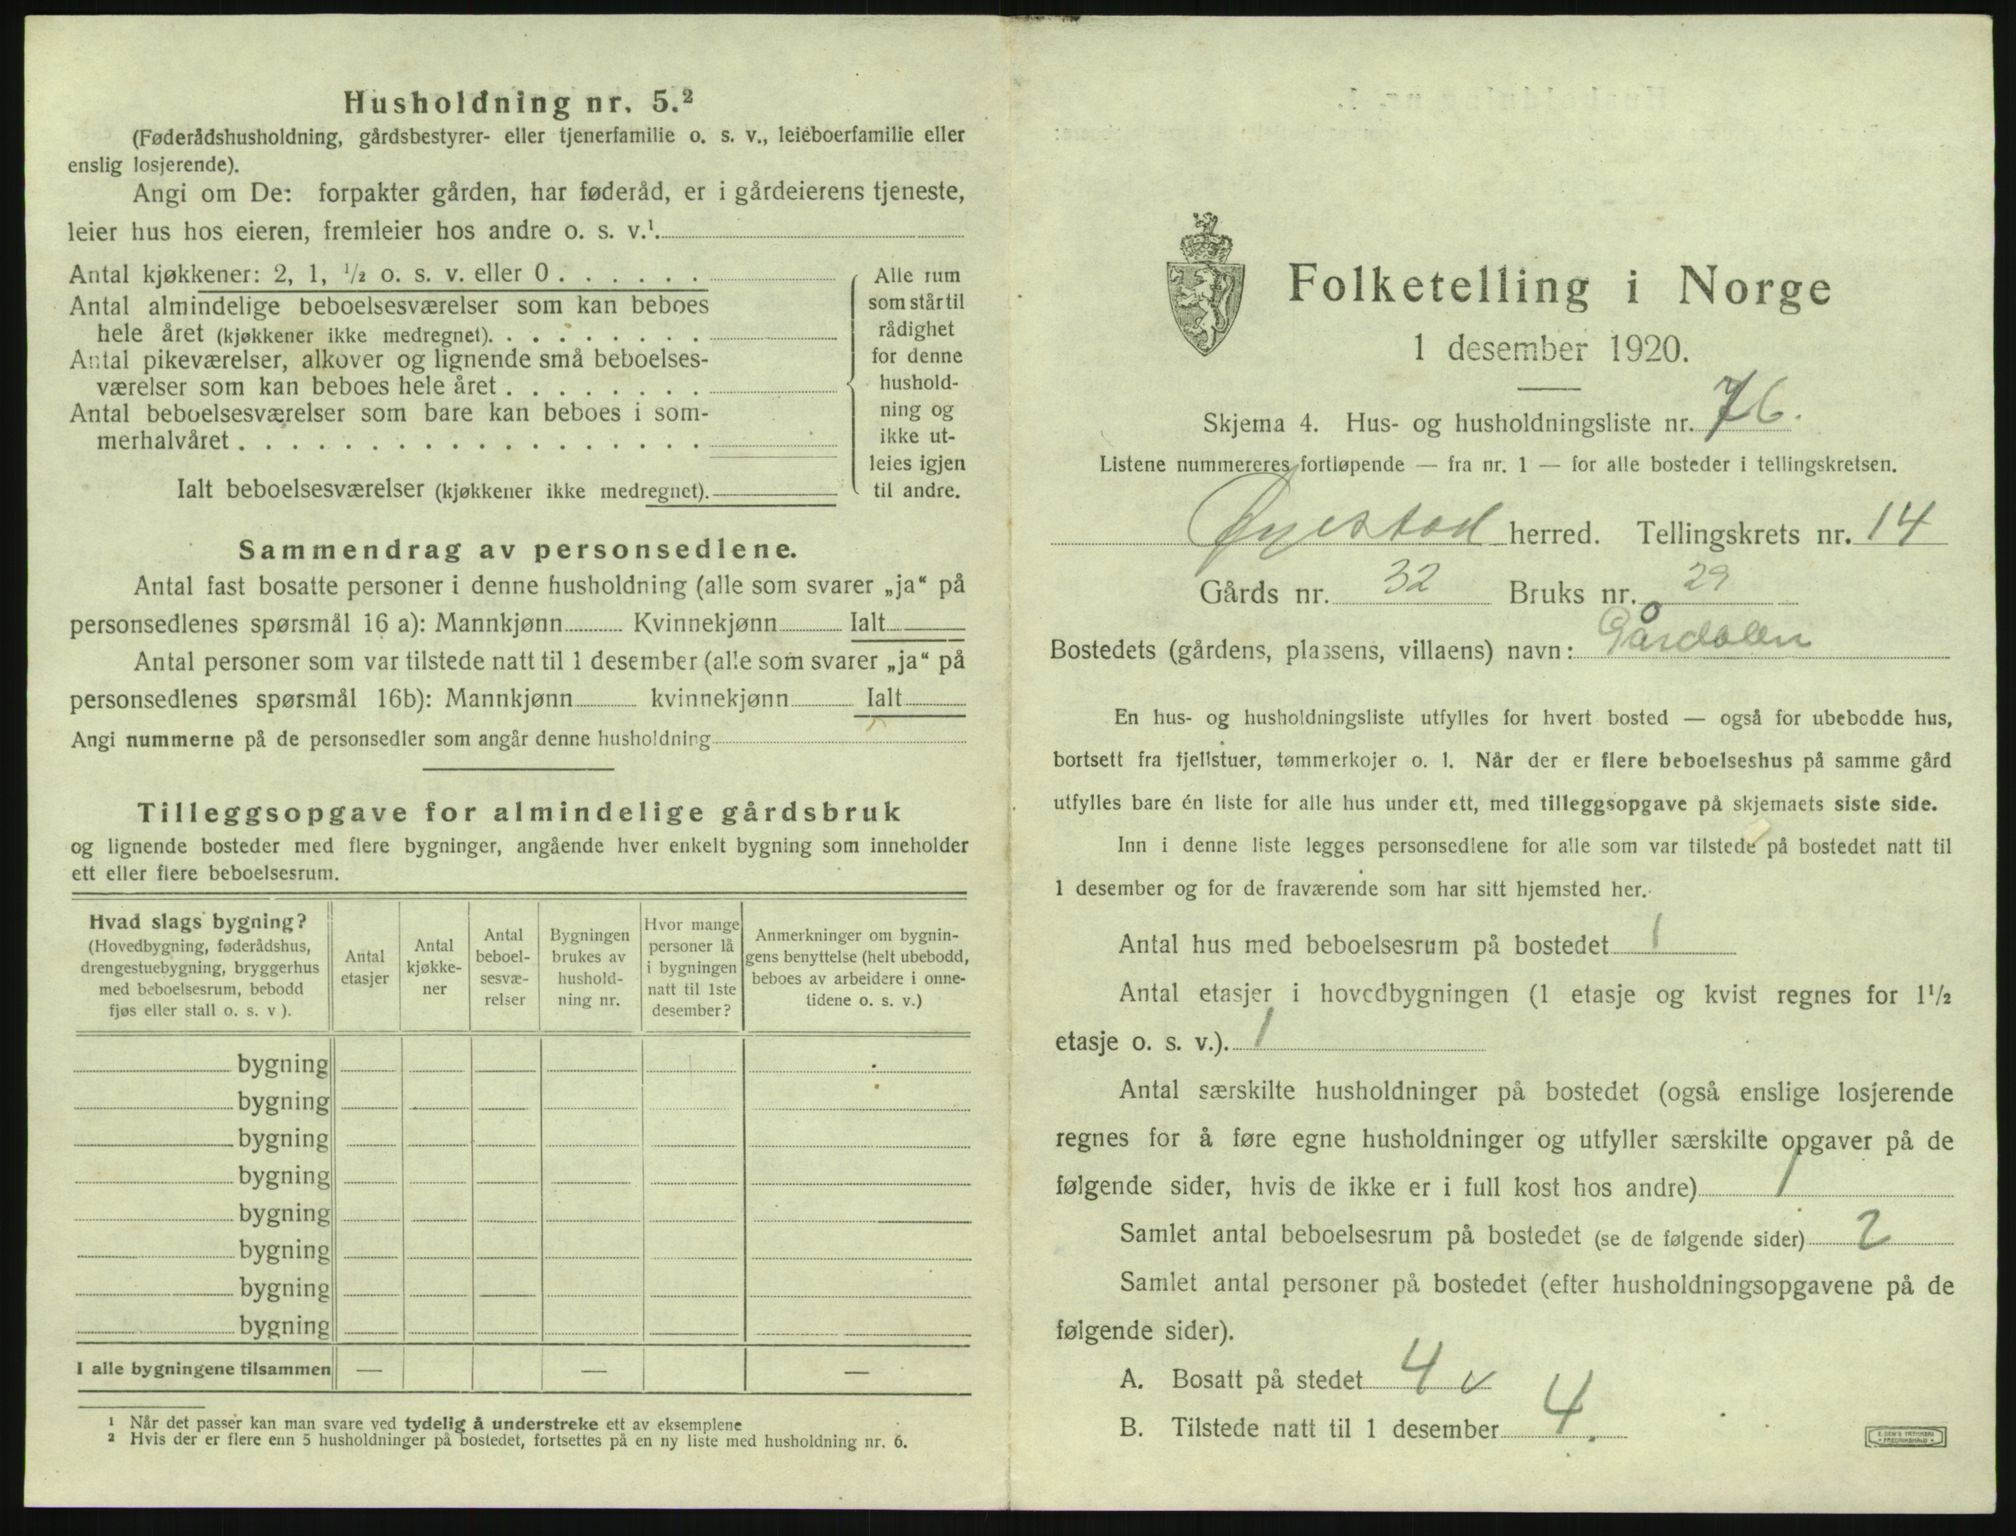 Husholdning nr. 5.²
(Føderådshusholdning, gårdsbestyrer- eller tjenerfamilie o. s. v., leieboerfamilie eller
enslig losjerende).
Angi om De: forpakter gården, har føderåd, er i gårdeierens tjeneste,
leier hus hos eieren, fremleier hos andre o. s. v.¹.
Antal kjøkkener: 2, 1, ½ o. s. v. eller 0 . . . . . .
Antal almindelige beboelsesværelser som kan beboes
hele året (kjøkkener ikke medregnet). . . . . . . . .
Antal pikeværelser, alkover og lignende små beboelses-
værelser som kan beboes hele året . . . . . . . .
Antal beboelsesværelser som bare kan beboes i som-
merhalvåret . . . . . . . . . . . . . . . . . .
Ialt beboelsesværelser (kjøkkener ikke medregnet).
Alle rum
som står til
rådighet
for denne
hushold-
ning og
ikke ut-
leies igjen
til andre.
Sammendrag av personsedlene.
Antal fast bosatte personer i denne husholdning (alle som svarer „ja“ på
personsedlenes spørsmål 16 a): Mannkjønn Kvinnekjønn Ialt
Antal personer som var tilstede natt til 1 desember (alle som svarer „ja“ på
personsedlenes spørsmål 16b): Mannkjønn kvinnekjønn Ialt
Angi nummerne på de personsedler som angår denne husholdning
Tilleggsopgave for almindelige gårdsbruk
og lignende bosteder med flere bygninger, angående hver enkelt bygning som inneholder
ett eller flere beboelsesrum.
Hvad slags bygning?
(Hovedbygning, føderådshus,
drengestuebygning, bryggerhus
med beboelsesrum, bebodd
fjøs eller stall o. s. v ).
Antal
etasjer
Antal
kjøkke-
ner
Antal
beboel-
sesvæ-
relser
Bygningen
brukes av
hushold-
ning nr.
Hvor mange
personer lå
i bygningen
natt til 1ste
desember?
Anmerkninger om bygnin-
gens benyttelse (helt ubebodd,
beboes av arbeidere i onne-
tidene o. s. v.)
bygning
bygning
bygning
bygning
bygning
bygning
bygning
bygning
I alle bygningene tilsammen — — —
¹ Når det passer kan man svare ved tydelig å understreke ett av eksemplene
² Hvis der er flere enn 5 husholdninger på bostedet, fortsettes på en ny liste med husholdning nr. 6.
Folketelling i Norge
1 desember 1920.
Skjema 4. Hus- og husholdningsliste nr. 76.
Listene nummereres fortløpende — fra nr. 1 — for alle bosteder i tellingskretsen.
Øyestad herred. Tellingskrets nr. 14
Gårds nr. 32 Bruks nr. 29
Bostedets (gårdens, plassens, villaens) navn: Gårdalen
En hus- og husholdningsliste utfylles for hvert bosted — også for ubebodde hus,
bortsett fra fjellstuer, tømmerkojer o. l. Når der er flere beboelseshus på samme gård
utfylles bare én liste for alle hus under ett, med tilleggsopgave på skjemaets siste side.
Inn i denne liste legges personsedlene for alle som var tilstede på bostedet natt til
1 desember og for de fraværende som har sitt hjemsted her.
Antal hus med beboelsesrum på bostedet 1
Antal etasjer i hovedbygningen (1 etasje og kvist regnes for 1½
etasje o. s. v.). 1
Antal særskilte husholdninger på bostedet (også enslige losjerende
regnes for å føre egne husholdninger og utfyller særskilte opgaver på de
følgende sider, hvis de ikke er i full kost hos andre) 1
Samlet antal beboelsesrum på bostedet (se de følgende sider) 2
Samlet antal personer på bostedet (efter husholdningsopgavene på de
følgende sider).
A. Bosatt på stedet 4 v
B. Tilstede natt til 1 desember 4